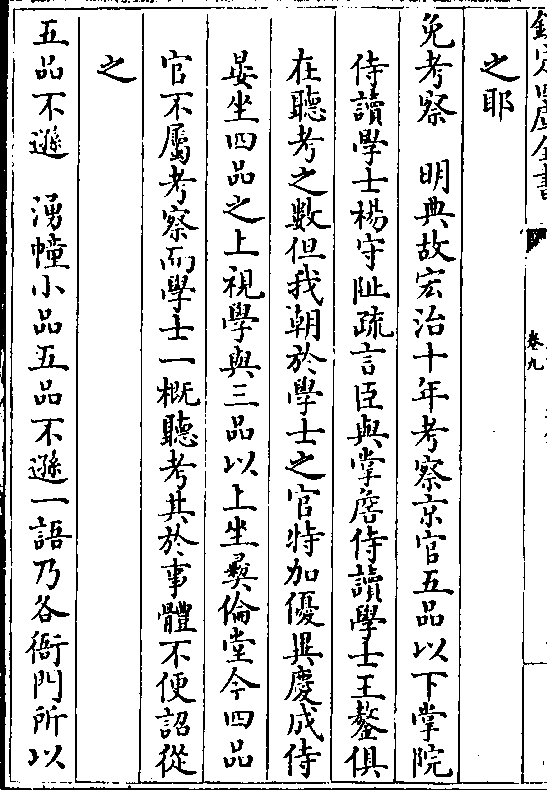 欽定四庫全書
卷九
之耶
免考察　明典故宏治十年考察京官五品以下掌院
侍讀學士楊守阯疏言臣與掌詹侍讀學士王鏊俱
在聽考之數但我朝於學士之官特加優異慶成侍
晏坐四品之上視學與三品以上坐彞倫堂今四品
官不屬考察而學士一概聽考其於事體不便詔從
之
五品不遜　湧幢小品五品不遜一語乃各衙門所以